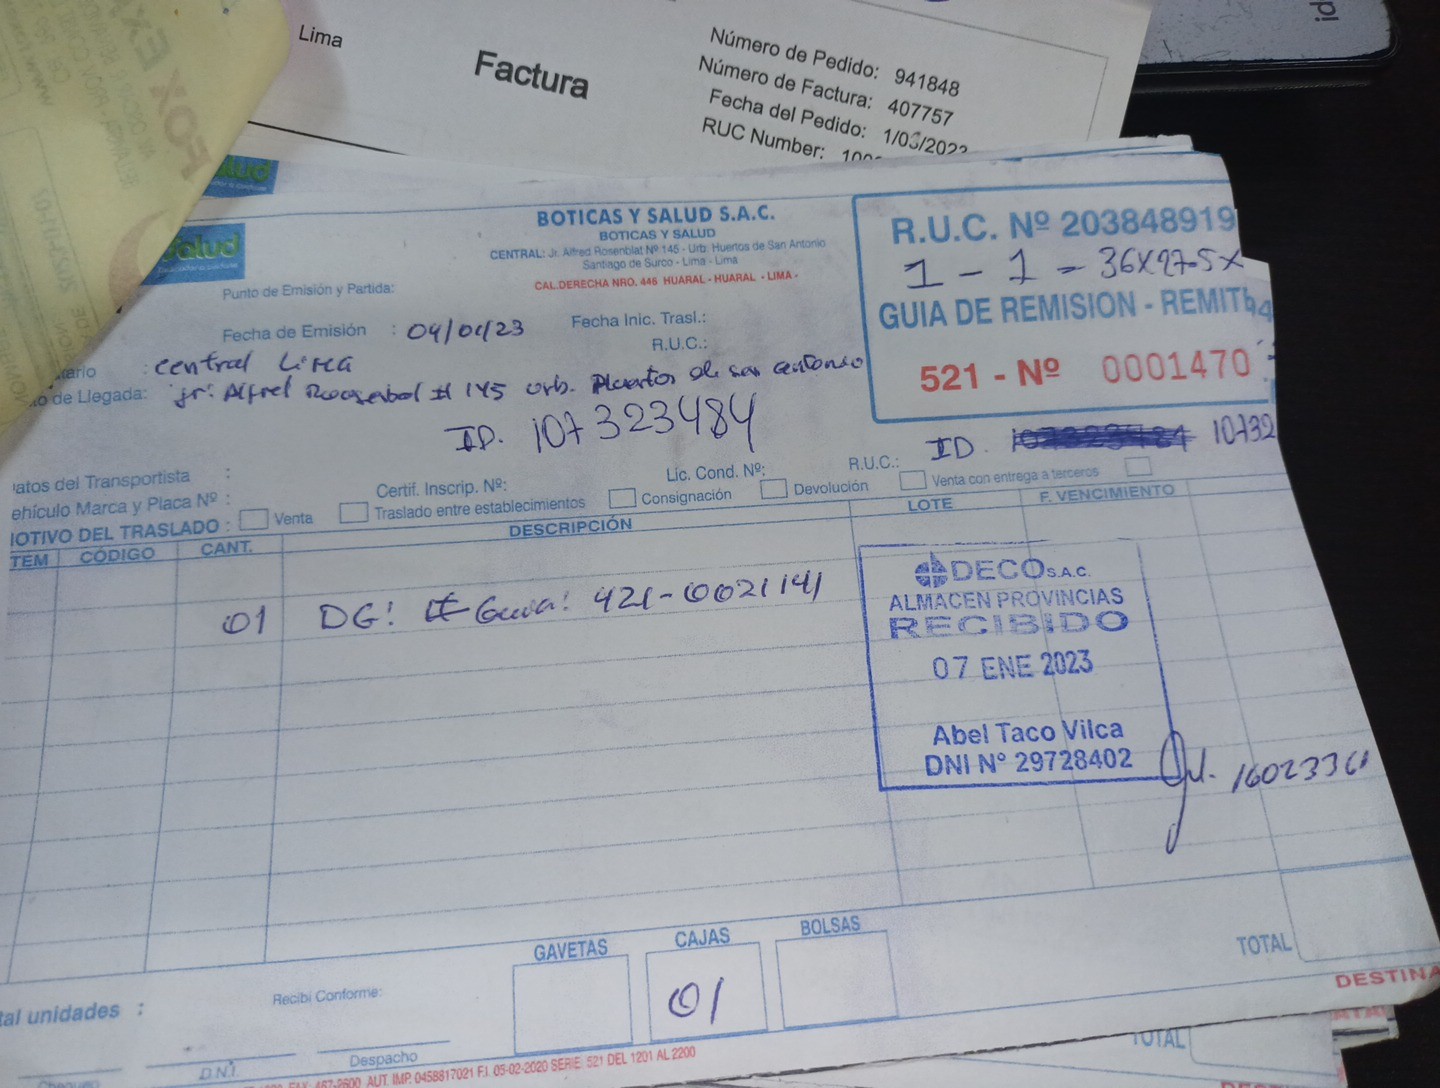 Lima
Factura
Número de Pedido: 941848
Número de Factura: 407757
Fecha del Pedido: 1/03/2022
RUC Number:
FOX
Salud
BOTICAS Y SALUD S.A.C.
BOTICAS Y SALUD
CENTRAL: Jr. Alfred Rosenblat Nº 145 - Urb. Huertos de San Antonio
Santiago de Surco - Lima - Lima
CAL.DERECHA NRO. 446 HUARAL - HUARAL - LIMA -
R.U.C. Nº 203848919
1 - 1 - 36X27.5X
GUIA DE REMISION - REMIT
521 - Nº 0001470
Punto de Emisión y Partida:
Fecha de Emisión : 04/01/23 Fecha Inic. Trasl.:
R.U.C.:
tario : central Lima
to de Llegada: jr: Alfred # 145 Urb. de san antonio
ID. 107323484
ID. 10732
atos del Transportista :
ehículo Marca y Placa Nº :
Certif. Inscrip. Nº:
Lic. Cond. Nº:
R.U.C.:
IOTIVO DEL TRASLADO : Venta Traslado entre establecimientos Consignación Devolución Venta con entrega a terceros
TEM CÓDIGO CANT. DESCRIPCIÓN LOTE F. VENCIMIENTO
01 DG: # Guia: 421-0021141
DECO S.A.C.
ALMACEN PROVINCIAS
RECIBIDO
07 ENE 2023
Abel Taco Vilca
DNI Nº 29728402
GAVETAS CAJAS BOLSAS
01
TOTAL
tal unidades :
Recibí Conforme:
DESTINA
D.N.I.
Despacho
467-2600 AUT. IMP. 0458817021 F.I. 05-02-2020 SERIE: 521 DEL 1201 AL 2200
TOTAL